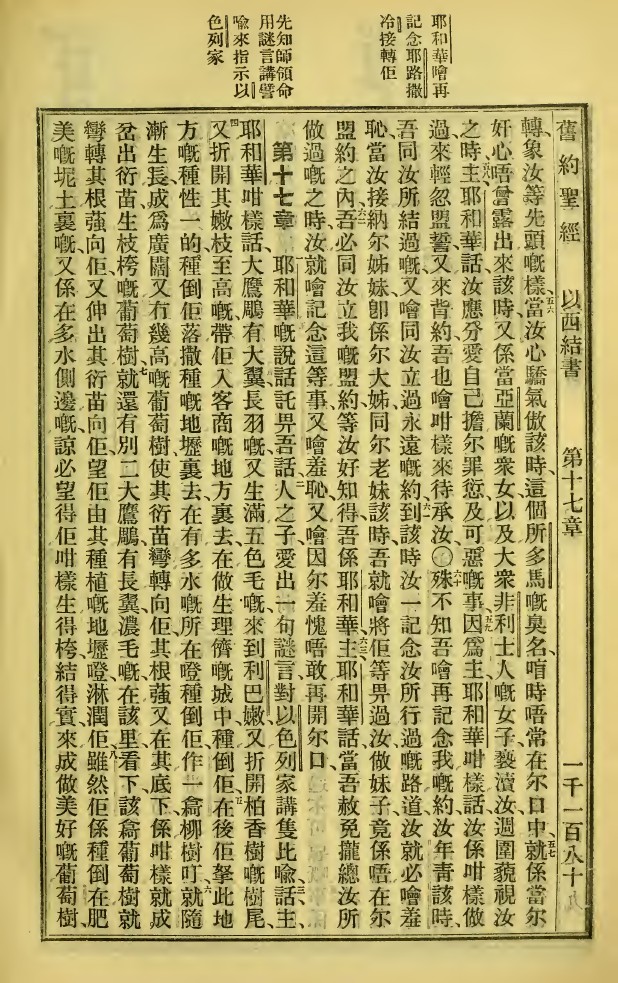 耶和華噲再
記念耶路撒
冷接轉佢
先知師領命
用謎言講譬
喻來指示以
色列家
舊約聖經 以西結書 第十七章 一千一百八十九
轉、象汝等先頭嘅樣、五六當汝心驕氣傲該時、這個所多馬嘅臭名、唷時唔常在尔口中、五七就係當尔
奸心唔曾露出來該時、又係當亞蘭嘅衆女、以及大衆非利士人嘅女子、褻瀆汝、週圍藐視汝
之時、五八主耶和華話、汝應分愛自己擔尔罪愆、及可惡嘅事、五九因爲主耶和華咁樣話、汝係咁樣做
過來、輕忽盟誓、又來背約、吾也噲咁樣來待承汝、〇六十殊不知吾噲再記念我嘅約、汝年青該時、
吾同汝所結過嘅、又噲同汝立過永遠嘅約、六一到該時汝一記念汝所行過嘅路道、汝就必噲羞
恥、當汝接納尔姊妹、卽係尔大姊、同尔老妹該時、吾就噲將佢等畀過汝做妹子、竟係唔在尔
盟約之內、六二吾必同汝立我嘅盟約、等汝好知得吾係耶和華、六三主耶和華話、當吾赦免攏總汝所
做過嘅之時、汝就噲記念這等事、又噲羞恥、又噲因尔羞愧、唔敢再開尔口、
第十七章 一耶和華嘅說話託畀吾話、二人之子愛出一句謎言、對以色列家講隻比喻、三話、主
耶和華咁樣話、大鷹鵰有大翼長羽嘅、又生滿五色毛嘅、來到利巴嫩、又折開柏香樹嘅樹尾、
四又折開其嫩枝、至高嘅、帶佢入客商嘅地方裏去、在做生理儕嘅城中種倒佢、五在後佢拏此地
方嘅種性、一的種倒佢落撒種嘅地壢裏去、在有多水嘅所在嶝種倒佢、作一樖柳樹、六叮就隨
漸生長、成爲廣闊、又冇幾高嘅葡萄樹、使其衍苗彎轉向佢、其根蔃又在其底下、係咁樣就成
岔出衍苗、生枝桍嘅葡萄樹、七就還有別二大鷹鵰、有長翼濃毛嘅、在該里看下該樖葡萄樹就
彎轉其根蔃向佢、又伸出其衍苗向佢、望佢由其種植嘅地壢嶝淋潤佢、八雖然佢係種倒在肥
美嘅坭土裏嘅、又係在多水側邊嘅、諒必望得佢咁樣生得桍、結得實、來成做美好嘅葡萄樹、